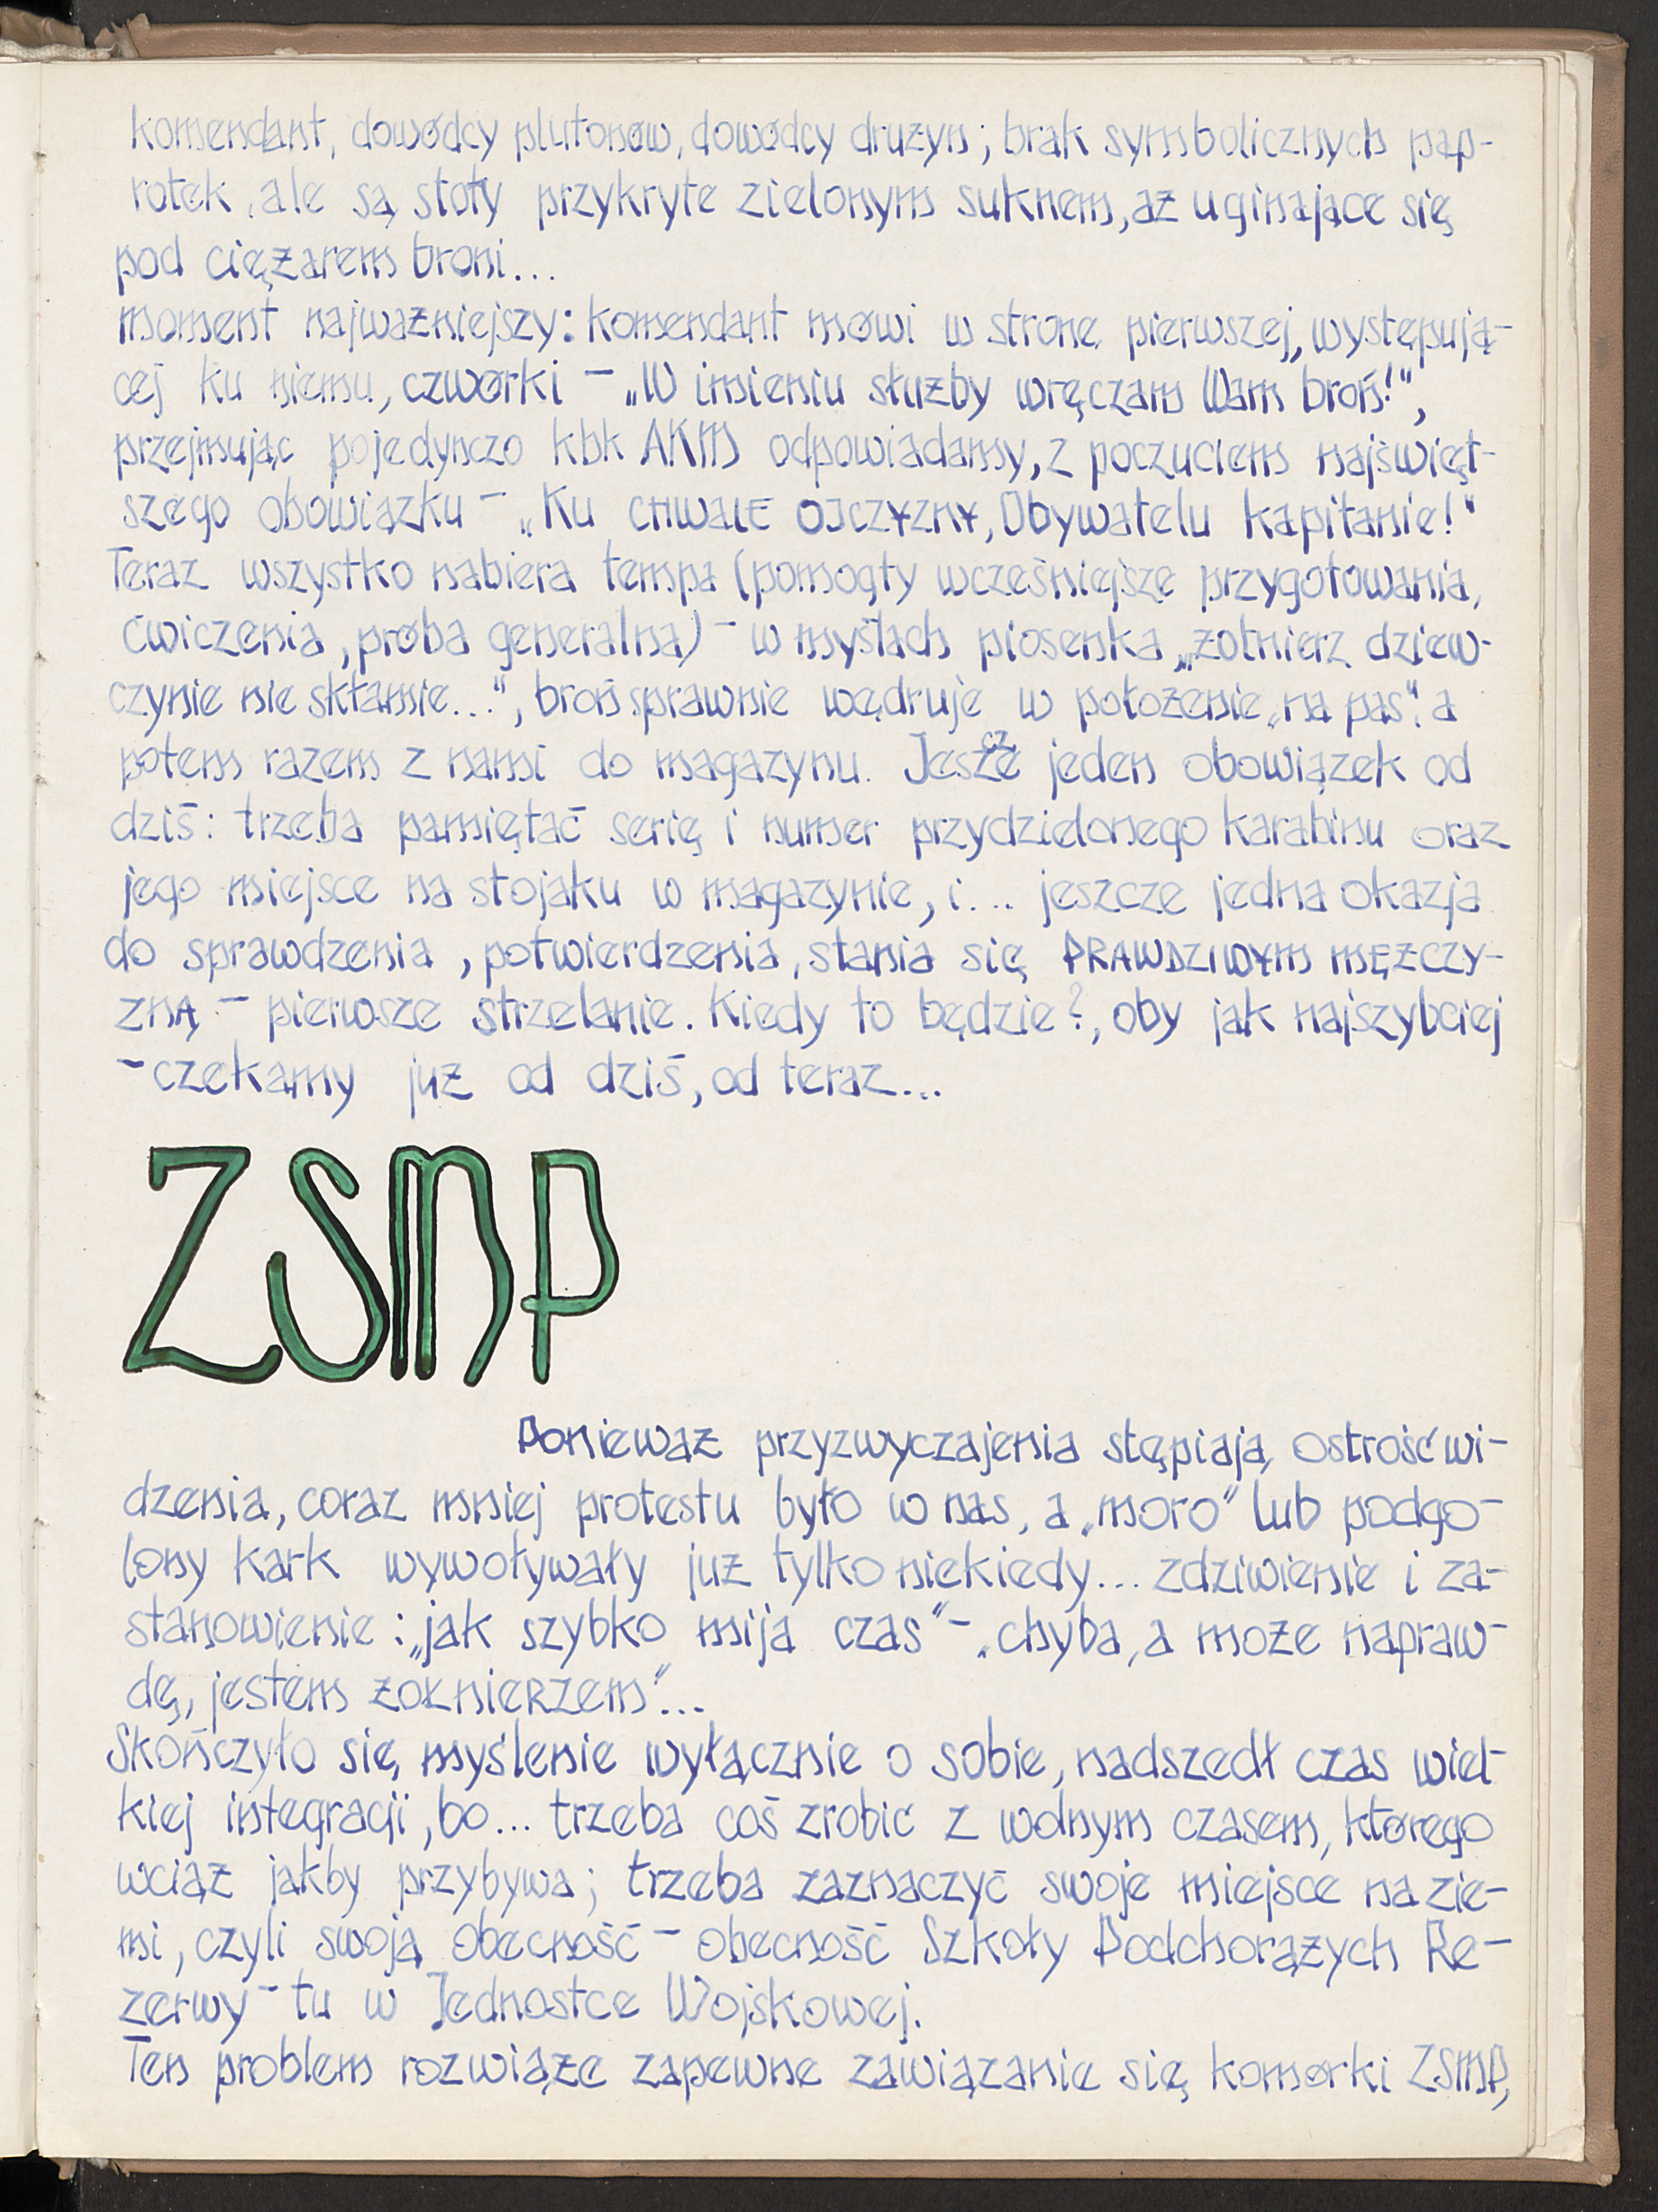 komendant, dowódcy plutonów, dowódcy drużyn; brak symbolicznych pap-
rotek, ale są stoły przykryte zielonym suknem, aż uginające się
pod ciężarem broni...
moment najważniejszy: komendant mówi w stronę pierwszej, występują-
cej ku niemu, czwórki – „W imieniu służby wręczam Wam broń!",
przejmując pojedynczo kbk AKM odpowiadamy, z poczuciem najświęt-
szego obowiązku – „Ku CHWALE OJCZYZNY, Obywatelu kapitanie!"
Teraz wszystko nabiera tempa (pomogły wcześniejsze przygotowania,
ćwiczenia, próba generalna) – w myślach piosenka „żołnierz dziew-
czynie nie skłamie...", broń sprawnie wędruje w położenie „na pas", a
potem razem z nami do magazynu. Jeszcze jeden obowiązek od
dziś: trzeba pamiętać serię i numer przydzielonego karabinu oraz
jego miejsce na stojaku w magazynie, i... jeszcze jedna okazja
do sprawdzenia, potwierdzenia, stania się PRAWDZIWYM MĘŻCZY-
ZNĄ – pierwsze strzelanie. Kiedy to będzie?, oby jak najszybciej
– czekamy już od dziś, od teraz...
ZSMP
Ponieważ przyzwyczajenia stępiają ostrość wi-
dzenia, coraz mniej protestu było w nas, a „moro" lub podgo-
lony kark wywoływały już tylko niekiedy... zdziwienie i za-
stanowienie: „jak szybko mija czas" – „chyba, a może napraw-
dę, jestem żOŁNIERZEM"...
Skończyło się myślenie wyłącznie o sobie, nadszedł czas wiel-
kiej integracji, bo... trzeba coś zrobić z wolnym czasem, którego
wciąż jakby przybywa; trzeba zaznaczyć swoje miejsce na zie-
mi, czyli swoją obecność – obecność Szkoły Podchorążych Re-
zerwy – tu w Jednostce Wojskowej.
Ten problem rozwiąże zapewne zawiązanie się komórki ZSMP,